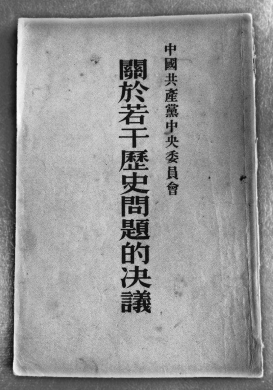 中國共產黨中央委員會
關於若干歷史問題的决議